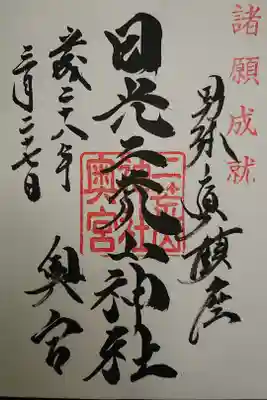 諸願成就
男体山頂鎮座
日光二荒山神社
二荒山神社奥宮
奥宮
平成二十八年
三月二十七日